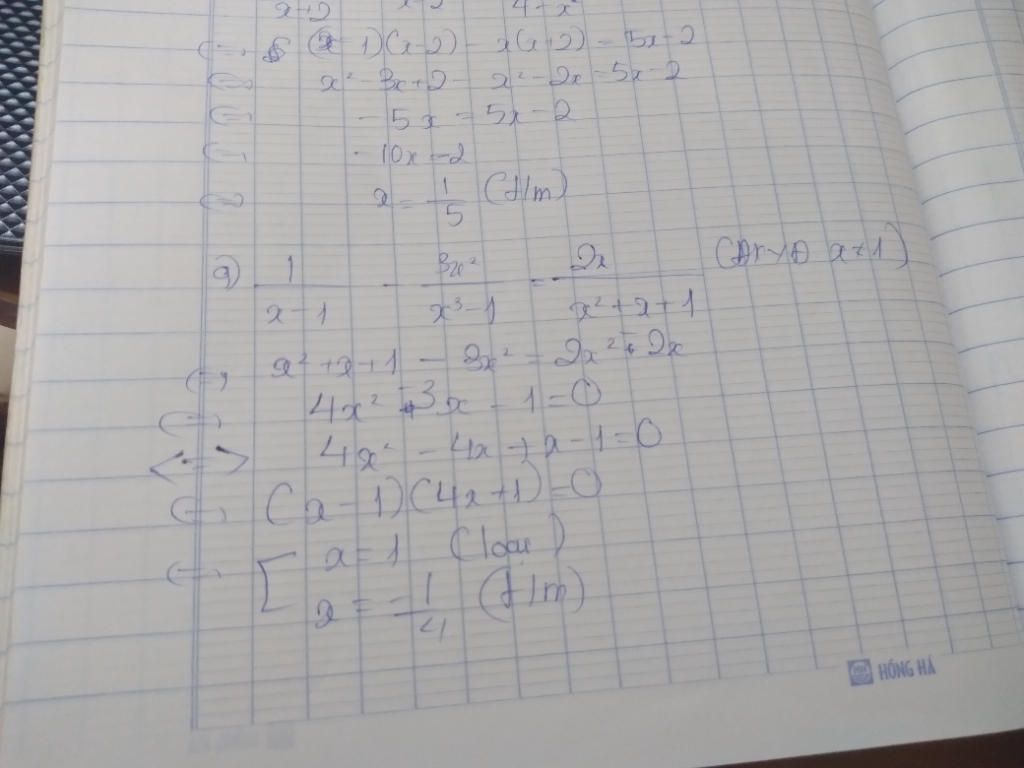 x+2 x-2 4-x²
(x-1)(x-2) - x(x+2) = 5x-2
x² - 3x + 2 - x² - 2x = 5x-2
-5x = 5x-2
-10x = -2
x = 1/5 (t/m)
a) 1/(x-1) - 3x²/(x³-1) = 2x/(x²+x+1) (ĐKXĐ x≠1)
<=> x²+x+1 - 3x² = 2x² - 2x
<=> 4x² - 3x - 1 = 0
<=> 4x² - 4x + x - 1 = 0
<=> (x-1)(4x+1) = 0
<=> [ x = 1 (loại)
x = -1/4 (t/m)
HỒNG HÀ